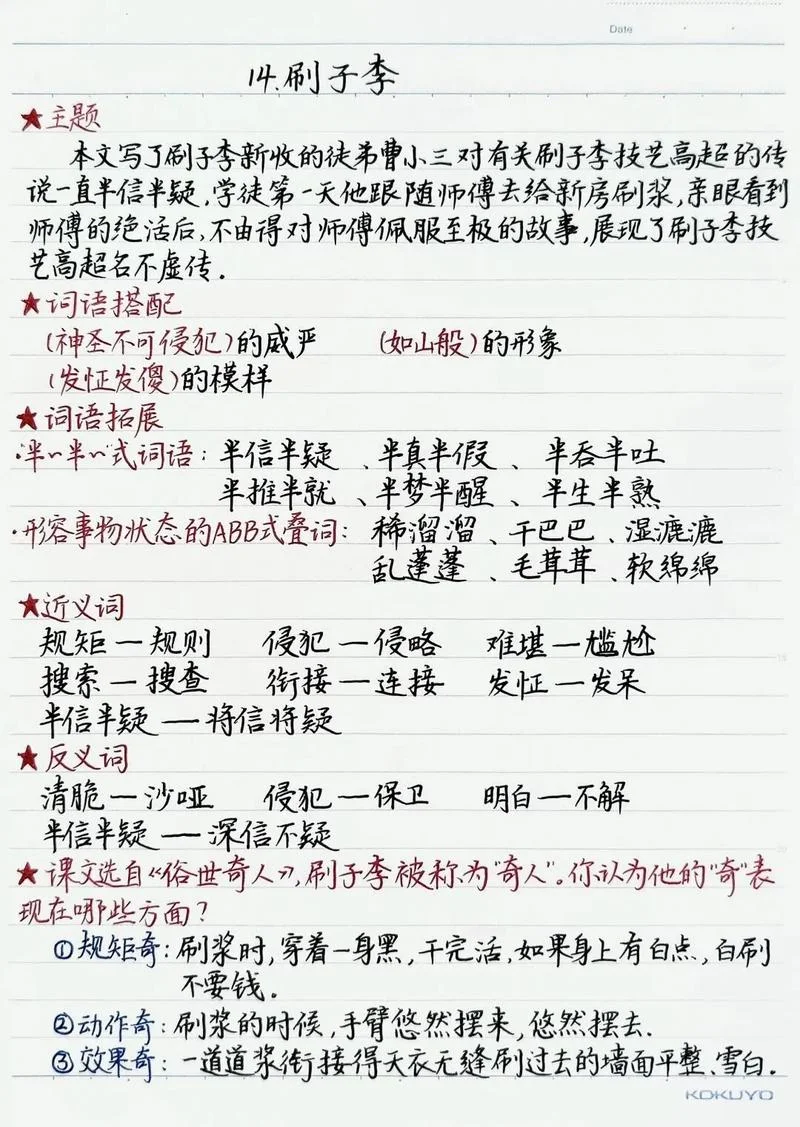 Date
14.刷子李
★主题
本文写了刷子李新收的徒弟曹小三对有关刷子李技艺高超的传
说一直半信半疑,学徒第一天他跟随师傅去给新房刷浆,亲眼看到
师傅的绝活后,不由得对师傅佩服至极的故事,展现了刷子李技
艺高超名不虚传.
★词语搭配
(神圣不可侵犯)的威严 (如山般)的形象
(发怔发傻)的模样
★词语拓展
·半~半~式词语: 半信半疑、半真半假、半吞半吐
半推半就、半梦半醒、半生半熟
·形容事物状态的ABB式叠词: 稀溜溜、干巴巴、湿漉漉
乱蓬蓬、毛茸茸、软绵绵
★近义词
规矩—规则 侵犯—侵略 难堪—尴尬
搜索—搜查 衔接—连接 发怔—发呆
半信半疑—将信将疑
★反义词
清脆—沙哑 侵犯—保卫 明白—不解
半信半疑—深信不疑
★课文选自《俗世奇人》,刷子李被称为"奇人"。你认为他的"奇"表
现在哪些方面?
①规矩奇: 刷浆时,穿着一身黑,干完活,如果身上有白点,白刷
不要钱.
②动作奇: 刷浆的时候,手臂悠然摆来,悠然摆去.
③效果奇: 一道道浆衔接得天衣无缝刷过去的墙面平整、雪白.
KOKUYO